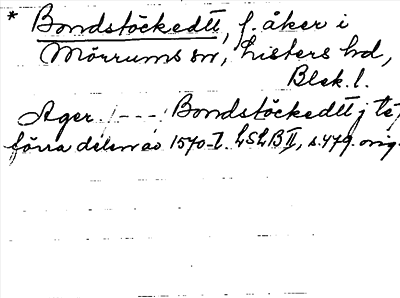 * Bondstöckedtt, f. åker i
Mörrums sn, Listers hd,
Blek. l.
Ager. /- - -/ Bondstöckedtt j
förra delen av 1570-t. LSLB II, s. 479. orig.